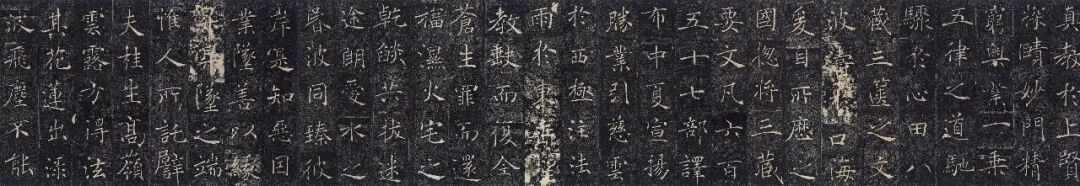 真教於上賢
探賾妙門精
窮奧業一乘
五律之道馳
驟於心田八
藏三篋之文
波於口海
爰自所歷之
國惣將三藏
要文凡六百
五十七部譯
布中夏宣揚
勝業引慈雲
於西極注法
雨於東垂聖
教缺而復全
蒼生罪而還
福濕火宅之
乾燄共拔迷
途朗愛水之
昏波同臻彼
岸是知惡因
業墜善以緣
墜之端
惟人所託譬
夫桂生高嶺
雲露方得泫
其花蓮出淥
波飛塵不能